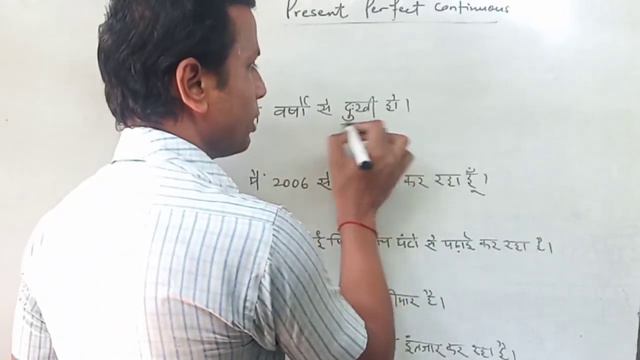 Present Perfect Continuous
वर्षों से दुःखी हो।
मैं 2006 से कर रहा हूँ।
घंटों से पढ़ाई कर रहा है।
है।
इंतजार कर रहा है